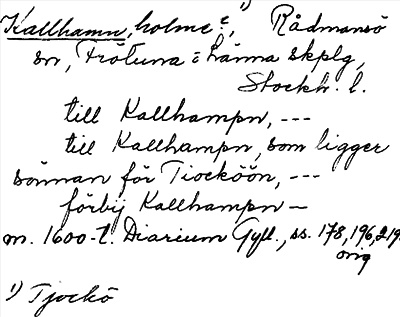 Kallhamn, holme ?, 1) Rådmansö
sn, Frötuna o Länna skplg,
Stockh. l.
till Kallhampn, ---
till Kallhampn, som ligger
sönnan för Tiocköön, ---
förbij Kallhampn —
m. 1600-t. Diarium Gyll., ss. 178, 196, 219
orig
1) Tjockö